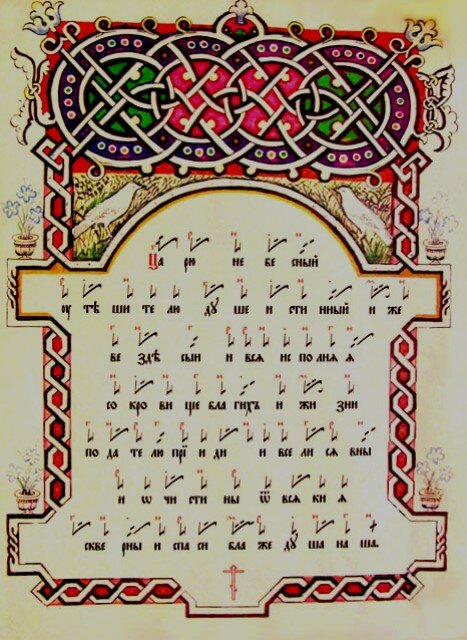 Ца рю не бе сный
оу тѣ ши те лю ду ше и сти нный и же
ве здѣ сыи и всѧ ис по лнѧ ѧ
со кро ви ще бла гихъ и жи зни
по да те лю прї и ди и все ли сѧ вны
и ѡ чи сти ны ѿ всѧ ки ѧ
скве рны и спа си бла же ду ша на ша.